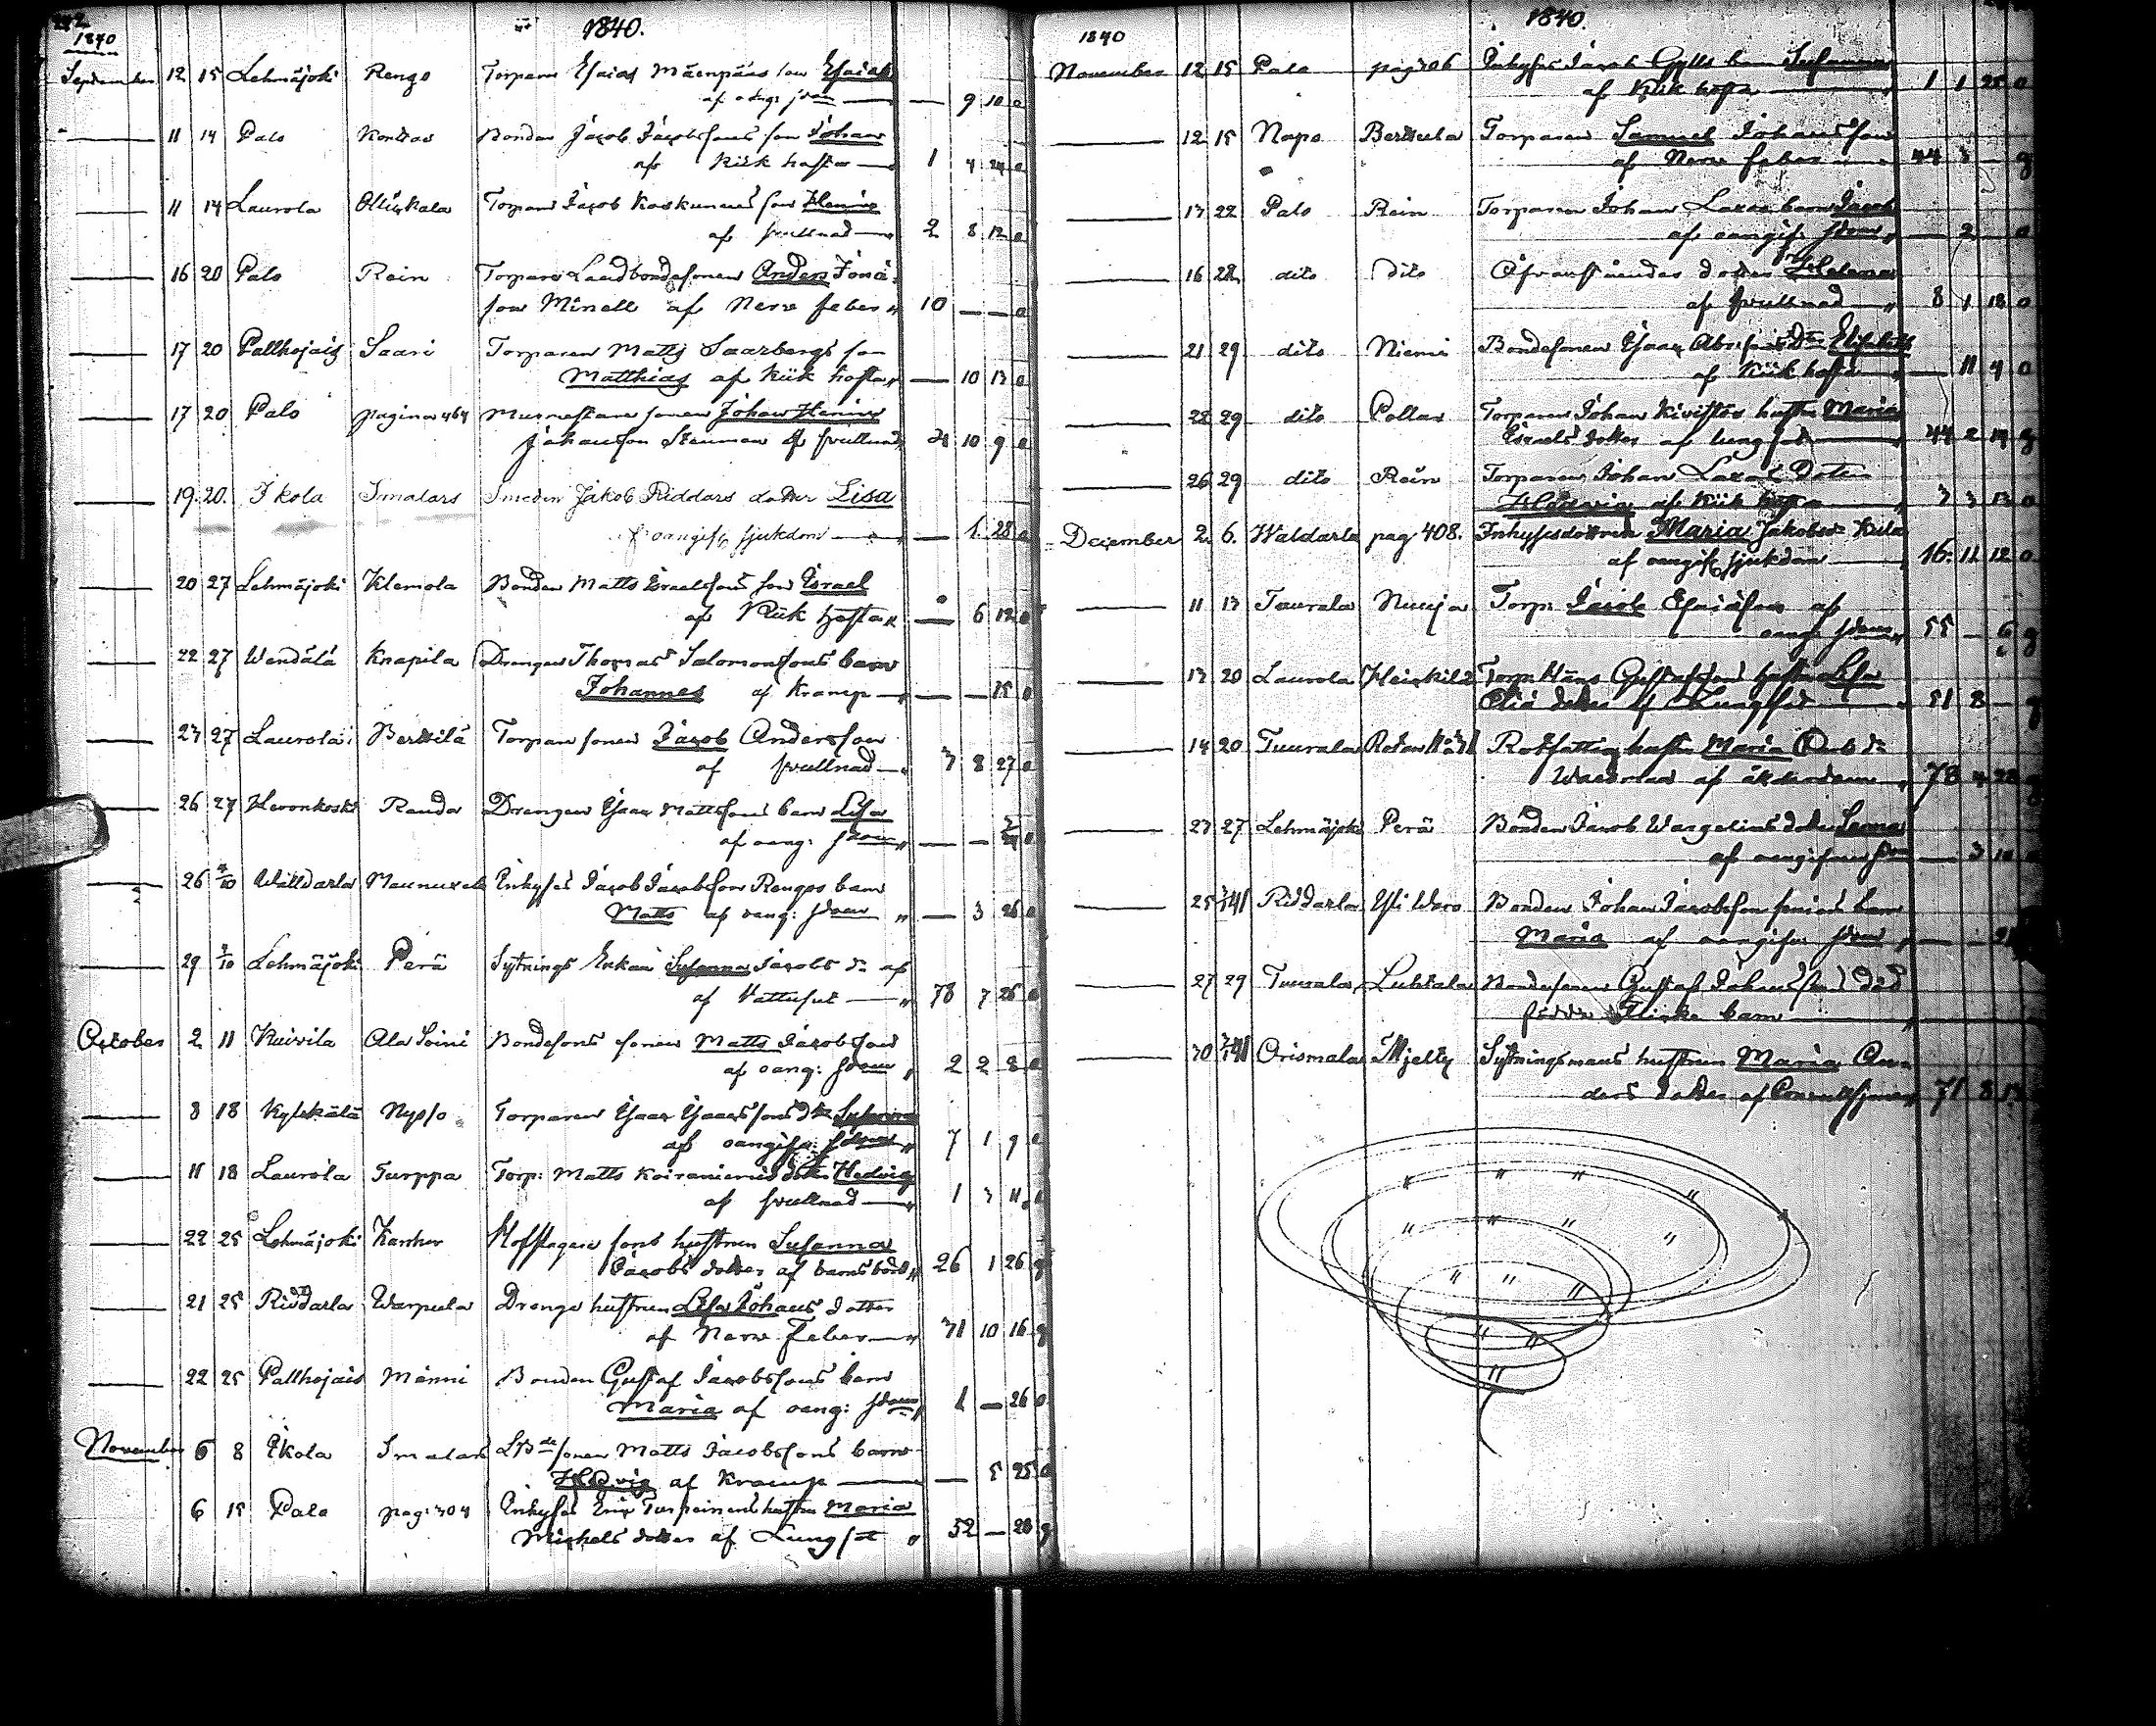 1840.
1840
September 12 15 Lehmäjoki Rengo Torparn Esaias Mäenpääs son Esaias
af oang: sjdom — 9 10 o
— 11 14 Palo Kontas Bonden Jacob Jacobssons son Johan
af Kikhosta — 1 4 24 o
— 11 14 Laurola Ollikkala Torparn Jacob Koskunens son
af svullnad — 2 8 12 o
— 16 20 Palo Rein Torpare Landbondesonen Anders Jona
son Minell af Nerv feber 10 — — o
— 17 20 Pallhojais Saari Torparen Matts Saarbergs son
Matthias af Kikhosta — 10 13 o
— 17 20 Palo pagina 464 sonen Johan
Johansson Stenman af svullnad 10 9 o
— 19 20. Ikola Smalars Smeden Jakob Riddars dotter Lisa
af oangifn sjukdom — 1. 28 o
— 20 27 Lehmäjoki Klemola Bonden Matts Israelssons son Israel
af Kikhosta — 6 12 o
— 22 27 Wendälä Knapila Drengen Thomas Salomonssons barn
Johannes af Kramp — — 15 o
— 23 27 Laurola Berttilä Torpare sonen Jacob Andersson
af svullnad — 3 8 27 o
— 26 27 Hevonkoski Randa Drengen Isaac Mattssons barn Lisa
af oang: sjdom — —
— 26 Walldarla Inhyses Jacob Jacobsson Rengos barn
Matts af oang: sjdom — 3 26 o
— 29 Lehmäjoki Perä Sytnings Enkan Susanna Jacobs dr af
af Vattusot — 78 7 26
October 2 11 Kuivila Ala Soini Bondesons sonen Matts Jacobsson
af oang: sjdom 2 2 8 o
— 8 18 Kylkkälä Nysso Torparen Isaac Isaacssons dtr Susanna
af oangifn: sjdom 7 1 9 o
— 11 18 Laurola Turppa Torp: Matts Koiraniemis dotter Hedvig
af svullnad — 1 3 11 o
— 22 25 Lehmäjoki Kanhu sons hustrun Susanna
Jacobs dotter af barnsbörd 26 1 26 g
— 21 25 Riddarla Warpula Drenge hustrun Lisa Johans dotter
af Nerv Feber — 31 10 16 g
— 22 25 Pallhojais Männi Bonden Gustaf Jacobssons barn
Maria af oang: sjdom 1 — 26 o
November 6 8 Ikola Smalars sonen Matts Jacobssons barn
Hedvig af Kramp — — 5 25 o
6 15 Palo pag: 304 Inhyses Eric Turpeinens hustru Maria
Michels dotter af Lungsot 52 — 28 g
1840.
1840
November 12 15 Palo Inhyses Jacob Gylls barn Susanna
af Kikhosta — 1 1 25 o
— 12 15 Napo Berttula Torparen Samuel Johansson
af Nerv feber — 44 3 — g
— 13 22 Palo Rein Torparen Johan barn Jacob
af oangifn sjdom — 2 — o
— 16 22 dito dito Ofvanstaendes dotter Helena
af svullnad — 8 1 18 o
— 21 29 dito Niemi Bondesonen Isaac dtr Elisabeth
af Kikhosta — 11 4 o
— 22 29 dito Pollar Torparen Johan Kivistös hustru Maria
Israels dotter af lungsot — 44 2 14 g
— 26 29 dito Rein Torparen Johan dotter
Hedvig af Kikhosta 3 3 13 o
December 2. 6. Waldarla pag 408. Inhysesdottren Maria Jakobsdr Kula
af oangifn sjukdom — 16. 11 12 o
— 11 13 Taurala Nuuja Torp: Jacob Esaiasson af
oang: sjdom 55 — 6 g
— 13 20 Laurola Heikkilä Torp: Hans Gustafssons hustru Lisa
Elia dotter af Lungsot — 51 8 — g
— 14 20 Tuurala Rotehåll Rotfattig hustru Maria
af ålderdom 78 4 22 g
— 23 27 Lehmäjoki Perä Bonden Jacob Wargelins dotter Leena
af oangifven sjdom — 3 10 o
— 25 Riddarla Yli Waro Bonden Johan Jacobsson seniors barn
Maria af oangifn: sjdom — — 21
— 27 29 Tuurala Luhtala Bondesonen Gustaf Johanssons död
födde Flicke barn —
— 30 Orismala Mjelty Sytningsmans hustrun Maria An-
ders dotter af 71 8 13